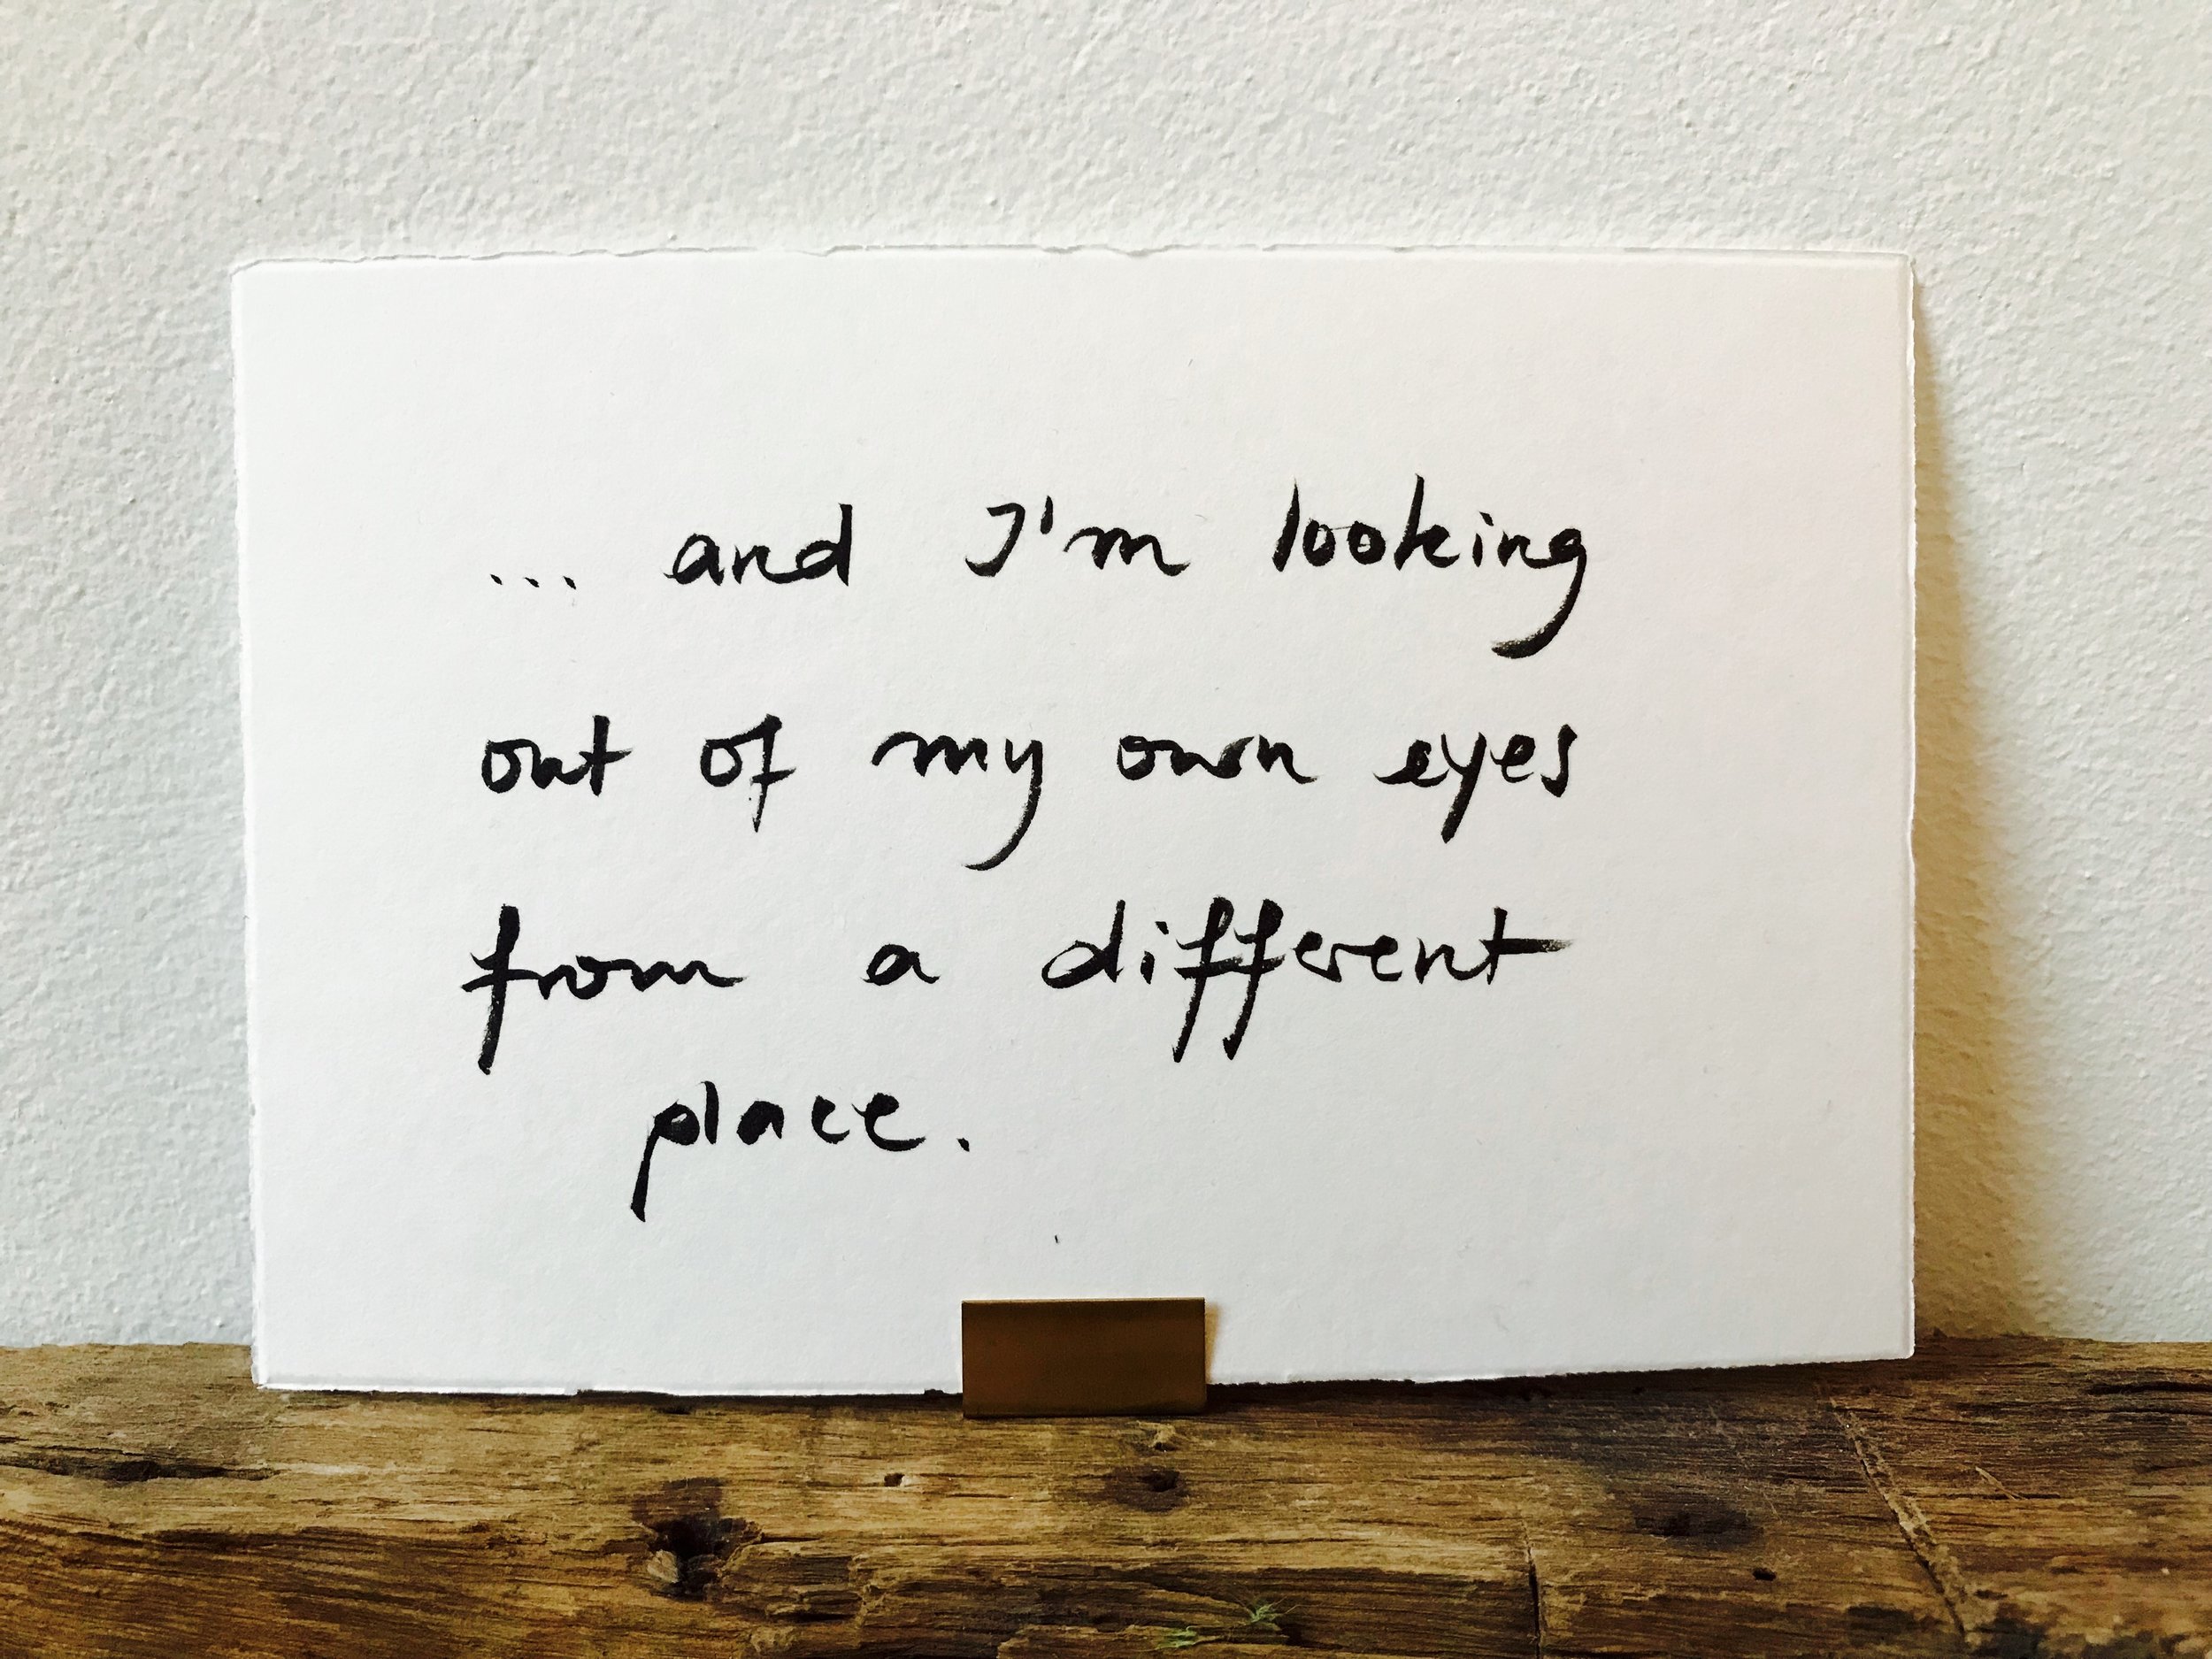 ... and I'm looking
out of my own eyes
from a different
place.